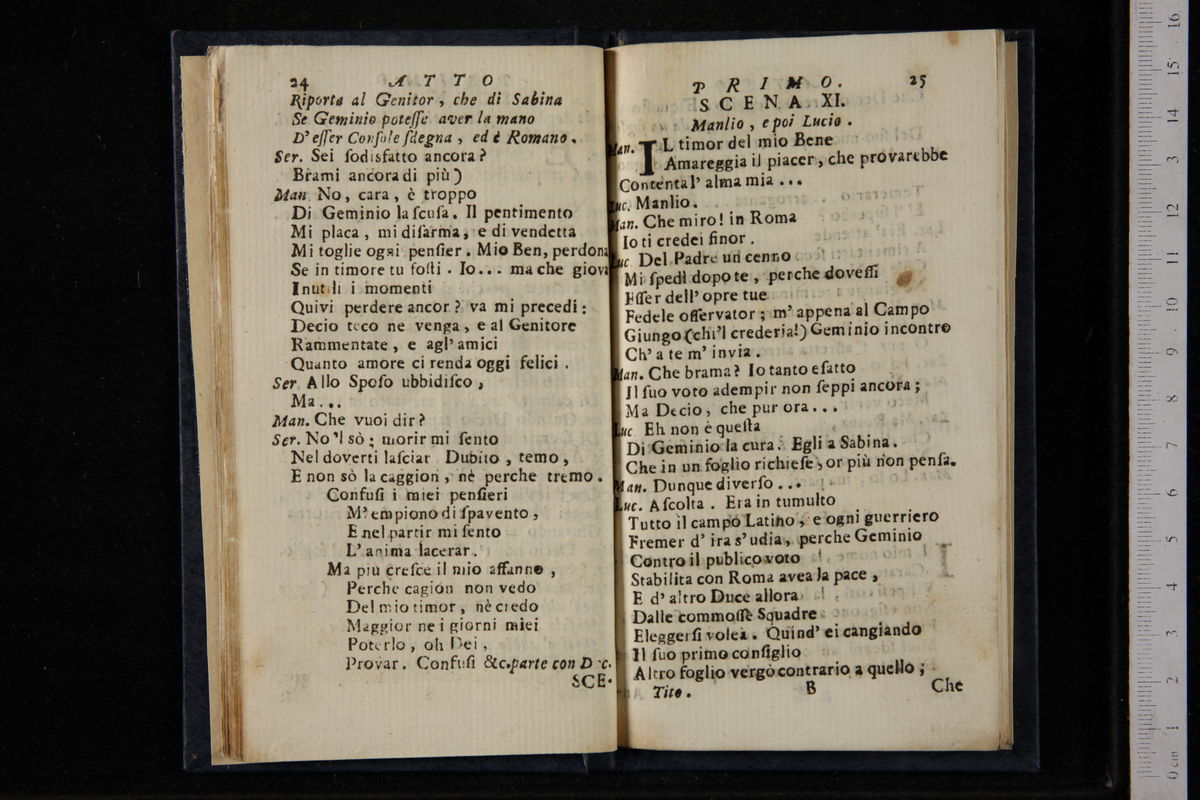 24 ATTO
Riporta al Genitor, che di Sabina
Se Geminio poteſſe aver la mano
D'eſſer Conſole ſdegna, ed è Romano.
Ser. Sei ſodisfatto ancora?
Brami ancora di più)
Man No, cara, è troppo
Di Geminio la ſcuſa. Il pentimento
Mi placa, mi diſarma, e di vendetta
Mi toglie ogni penſier. Mio Ben, perdona
Se in timore tu foſti. Io... ma che giova
Inutili i momenti
Quivi perdere ancor? va mi precedi:
Decio teco ne venga, e al Genitore
Rammentate, e agl' amici
Quanto amore ci renda oggi felici.
Ser Allo Spoſo ubbidiſco,
Ma...
Man. Che vuoi dir?
Ser. No'l sò; morir mi ſento
Nel doverti laſciar Dubito, temo,
E non sò la caggion, nè perche tremo.
Confuſi i miei penſieri
M' empiono di ſpavento,
E nel partir mi ſento
L' anima lacerar.
Ma più creſce il mio affanno,
Perche cagion non vedo
Del mio timor, nè credo
Maggior ne i giorni miei
Poterlo, oh Dei,
Provar. Confuſi &c. parte con Dec.
SCE-
PRIMO. 25
SCENA XI.
Manlio, e poi Lucio.
Man. IL timor del mio Bene
Amareggia il piacer, che provarebbe
Contenta l' alma mia...
Luc. Manlio.
Man. Che miro! in Roma
Io ti credei finor.
Luc Del Padre un cenno
Mi ſpedì dopo te, perche doveſſi
Eſſer dell' opre tue
Fedele oſſervator; m' appena al Campo
Giungo (chi'l crederia!) Geminio incontro
Ch' a te m' invia.
Man. Che brama? Io tanto eſatto
Il ſuo voto adempir non ſeppi ancora;
Ma Decio, che pur ora...
Luc Eh non è queſta
Di Geminio la cura. Egli a Sabina.
Che in un foglio richieſe, or più non penſa.
Man. Dunque diverſo...
Luc. Aſcolta. Era in tumulto
Tutto il campo Latino, e ogni guerriero
Fremer d' ira s' udia, perche Geminio
Contro il publico voto
Stabilita con Roma avea la pace,
E d' altro Duce allora
Dalle commoſſe Squadre
Eleggerſi volea. Quind' ei cangiando
Il ſuo primo conſiglio
Altro foglio vergò contrario a quello;
Tito. B Che